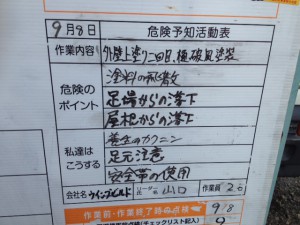 9月8日 危険予知活動表
作業内容 外壁上塗り二回目、樋、破風塗装
危険の
ポイント
塗料の飛散
足場からの落下
屋根からの落下
私達は
こうする
養生のカクニン
足元注意
安全帯の使用
会社名 ウイングビルド リーダー名 山口 作業員 2名
作業前・作業終了時の点検
(チェックリスト記入)
9/8